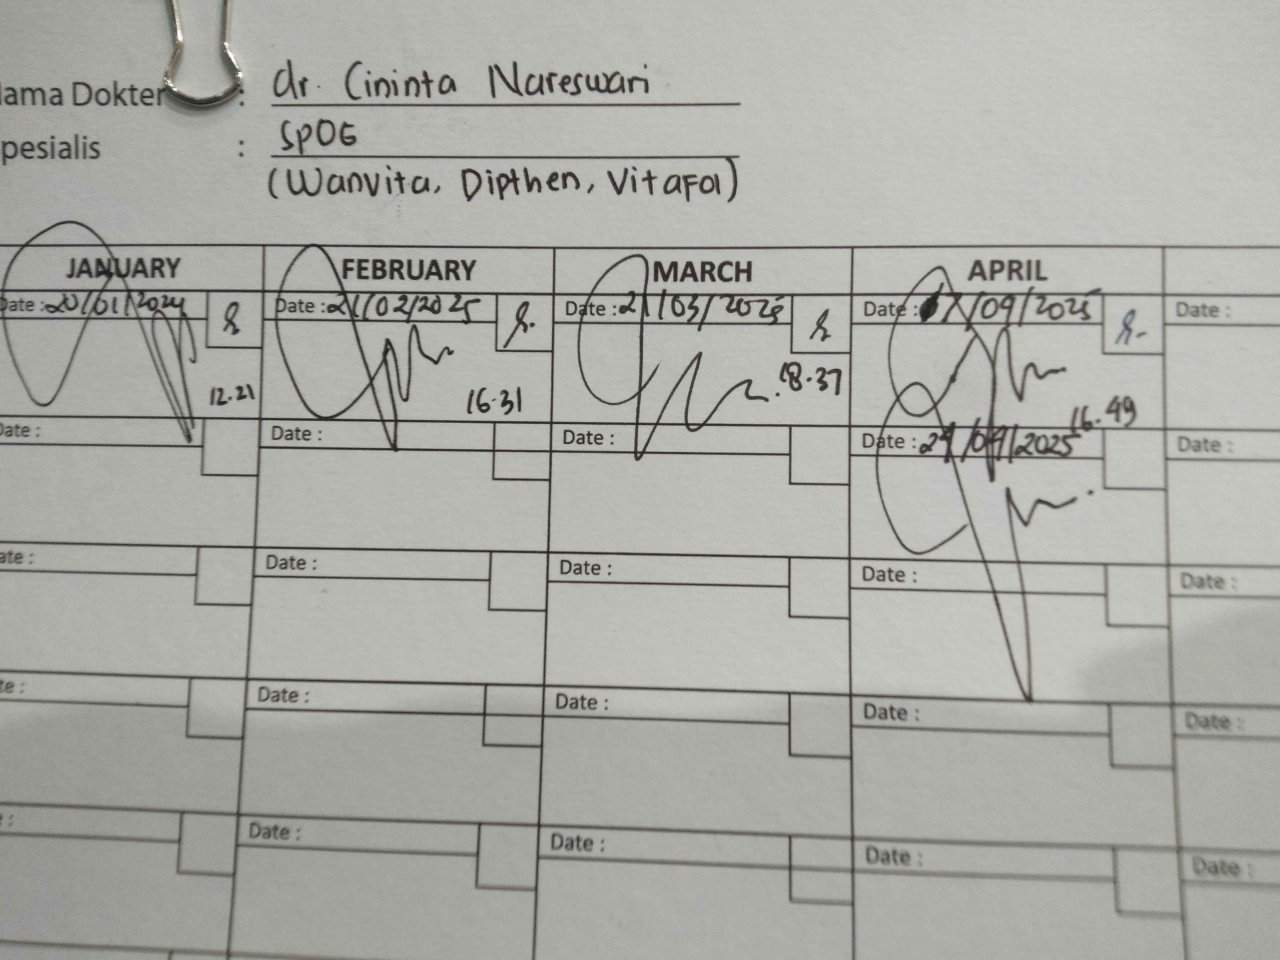 lama Dokter : dr. Cininta Nareswari
pesialis : SPOG
(Wanvita, Dipthen, Vitafol)
JANUARY FEBRUARY MARCH APRIL
Date : 20/01/2024 Date : 21/02/2025 Date : 21/03/2025 Date : 7/09/2025 Date :
12.21 16.31 18.37 16.49
Date : Date : Date : Date : 29/09/2025 Date :
ate : Date : Date : Date : Date :
te : Date : Date : Date : Date :
: Date : Date : Date : Date :